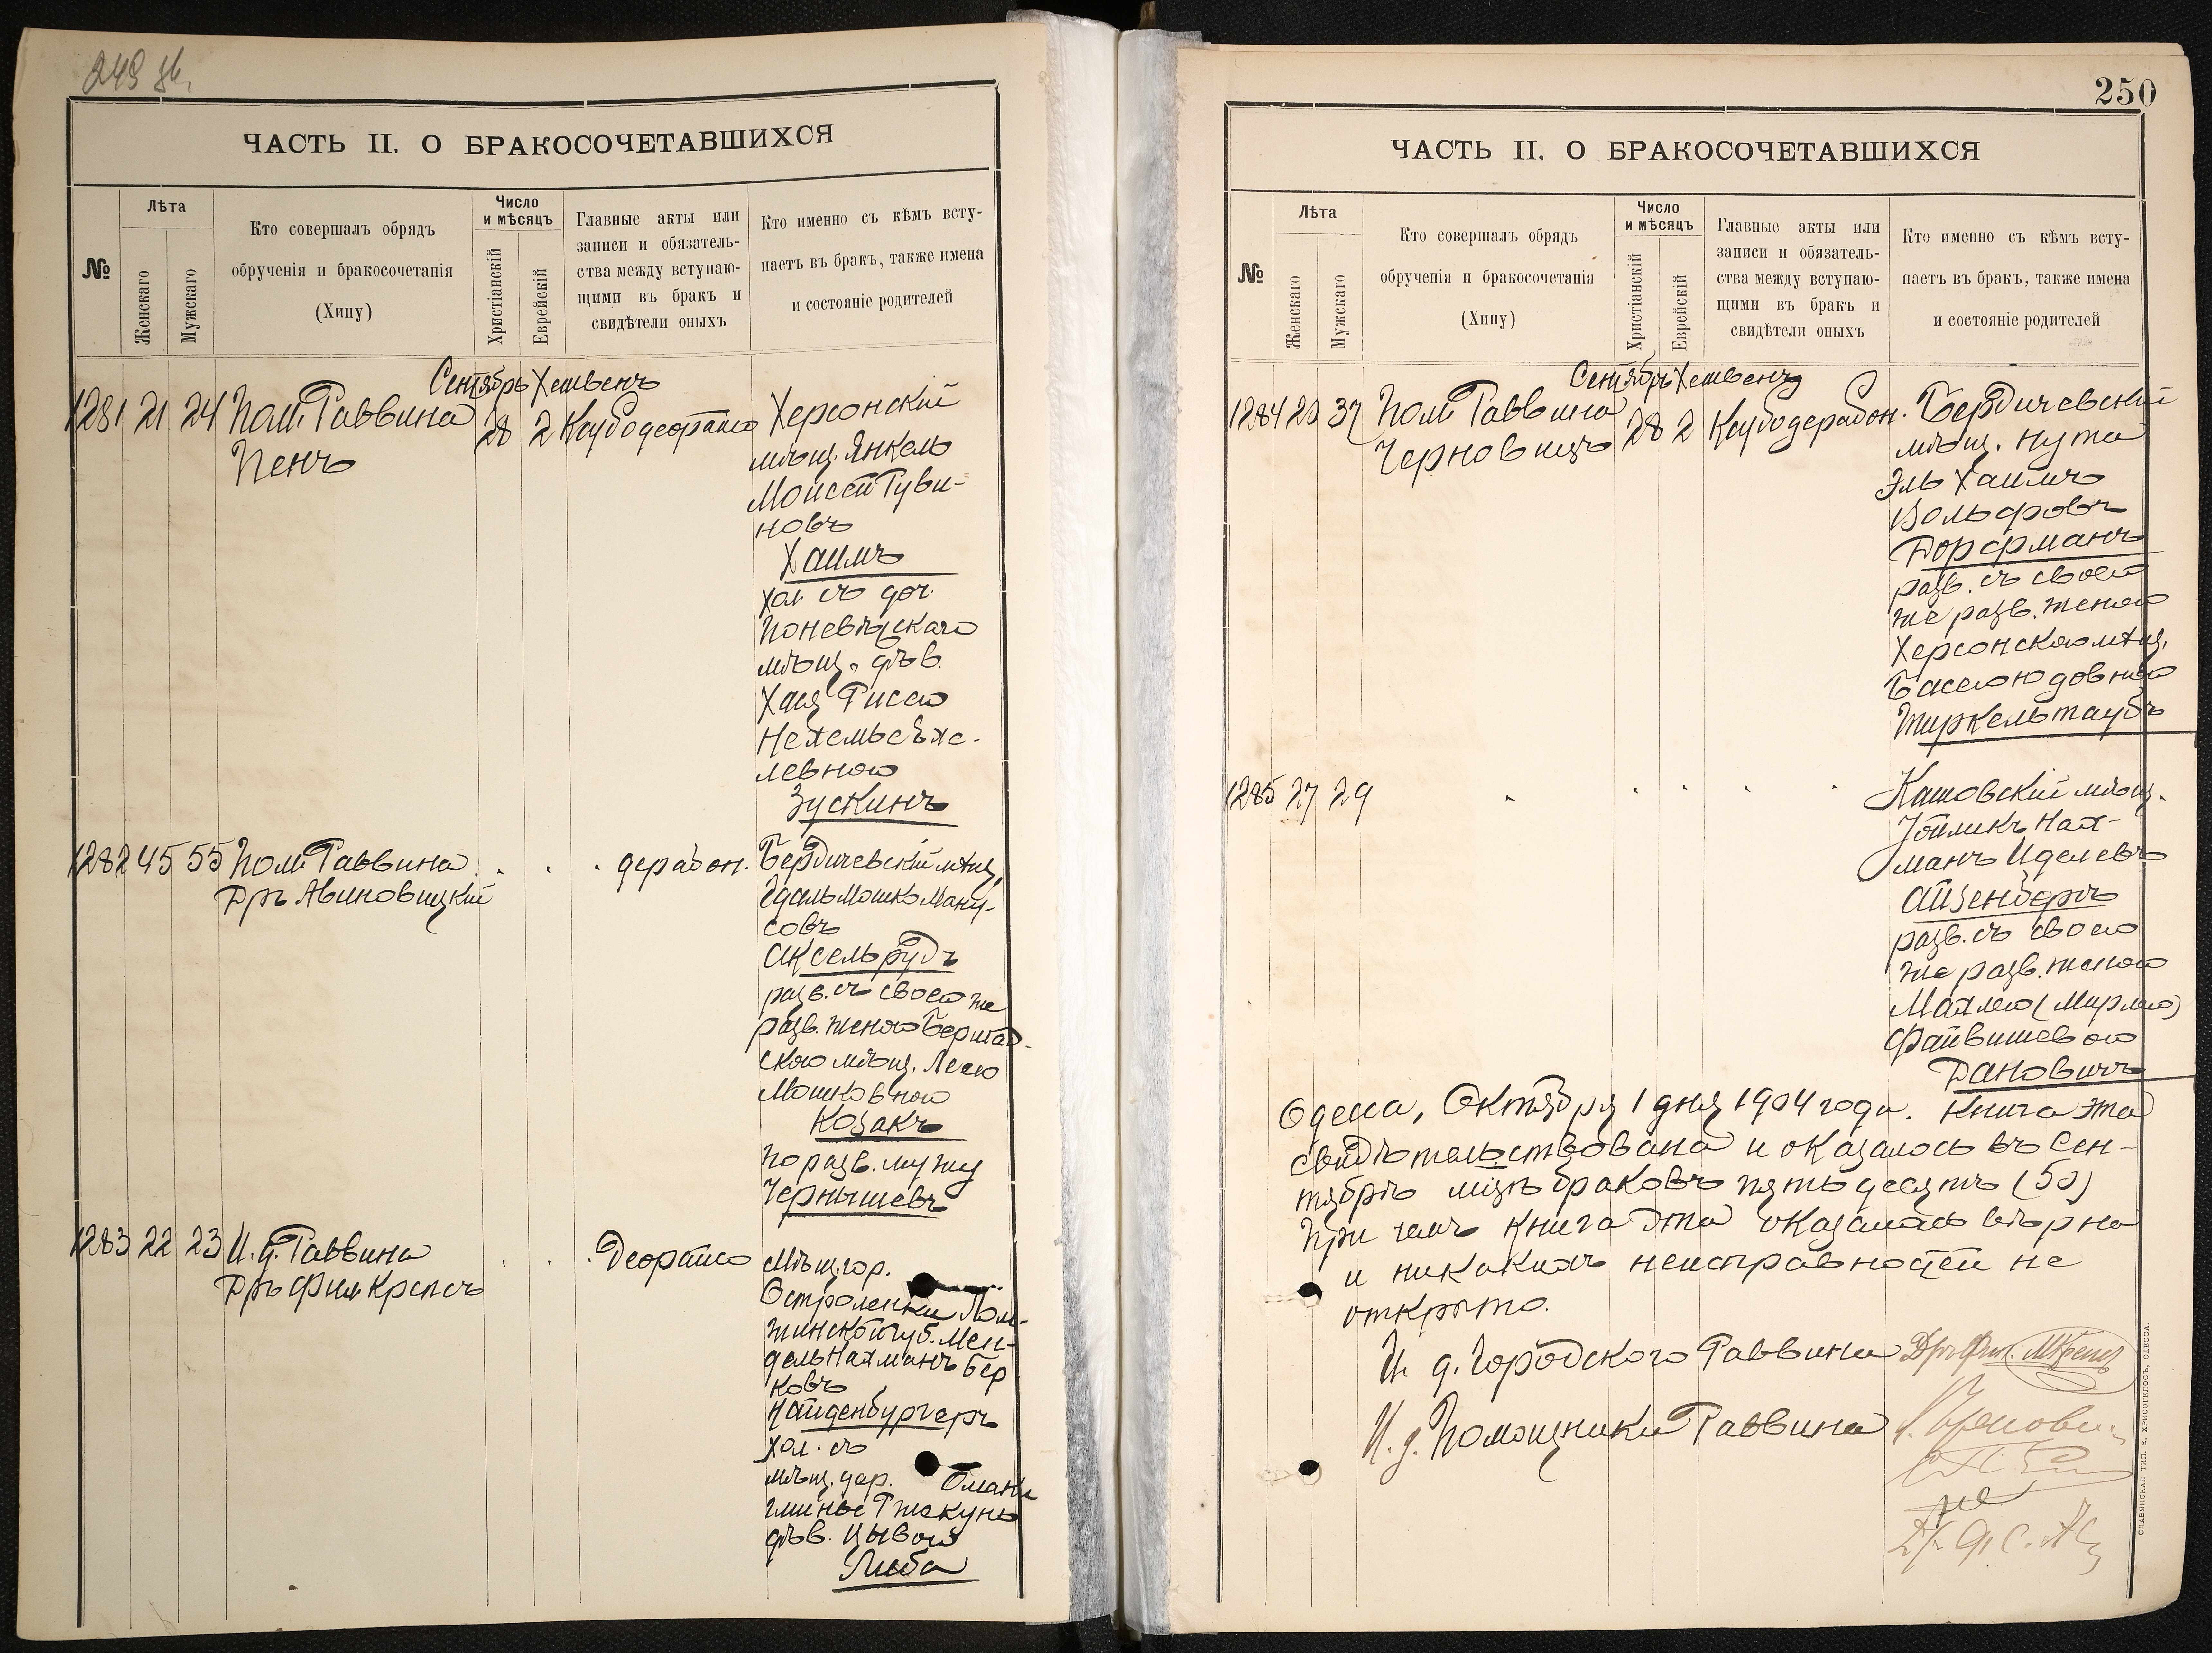 249 об.
ЧАСТЬ II. О БРАКОСОЧЕТАВШИХСЯ
№
Лѣта
Женскаго
Мужскаго
Кто совершалъ обрядъ
обрученія и бракосочетанія
(Хипу)
Число
и мѣсяцъ
Христіанскій
Еврейскій
Главные акты или
записи и обязатель-
ства между вступаю-
щими въ бракъ и
свидѣтели оныхъ
Кто именно съ кѣмъ всту-
паетъ въ бракъ, также имена
и состояніе родителей
Сентябрь Хешвенъ
1281 21 24 Пом. Раввина 28 2
Пенъ
Херсонскій
мѣщ. Янкель
Мойсей Руви-
новъ
Хаимъ
хол. съ доч.
Поневѣжскаго
мѣщ. дѣв.
Хая Риссею
Нехемье Ѣхе-
левною
Зускинъ
1282 45 55 Пом. Раввина
Дръ Авиновицкій
Бердичевскій мѣщ.
Гдаль Мошко Ману-
совъ
Аксельрудъ
разв. съ своею же
разв. женою Бершад-
скою мѣщ. Лесею
Мошковною
Козакъ
по разв. мужу
Чернышевъ
1283 22 23 И. д. Раввина
Дръ Фил. Крепсъ
Мѣщ. гор.
Остроленки Лом-
жинской губ. Мен-
дель Нахманъ Бер
ковъ
Найденбургеръ
хол. съ
мѣщ. дер. Омани
гмины Ржекунь
дѣв. Цывой
Либа
250
ЧАСТЬ II. О БРАКОСОЧЕТАВШИХСЯ
№
Лѣта
Женскаго
Мужскаго
Кто совершалъ обрядъ
обрученія и бракосочетанія
(Хипу)
Число
и мѣсяцъ
Христіанскій
Еврейскій
Главные акты или
записи и обязатель-
ства между вступаю-
щими въ бракъ и
свидѣтели оныхъ
Кто именно съ кѣмъ всту-
паетъ въ бракъ, также имена
и состояніе родителей
Сентябрь Хешвенъ
1284 20 37 Пом. Раввина 28 2
Черновицъ
Бердичевскій
мѣщ. Нута
Эль Хаимъ
Вольфовъ
Дорфманъ
разв. съ своею
же разв. женою
Херсонскою мѣщ.
Басею Юдовною
Тиркельтаубъ
1285 27 29
мѣщ.
Нах-
манъ Иделевъ
Айзенбергъ
разв. съ своею
же разв. женою
Махлею (Мирлею)
Файвишевою
Дановичъ
Одесса, Октября 1 дня 1904 года. Книга эта
свидѣтельствована и оказалось въ Сен-
тябрѣ мцѣ браковъ пятьдесятъ (50)
При чемъ книга эта оказалась вѣрна
и никакихъ неисправностей не
открыто.
И. д. Городского Раввина Дръ Фил. М. Крепсъ
И. д. Помощника Раввина
СЛАВЯНСКАЯ ТИП. Е. ХРИСОГЕЛОСЪ, ОДЕССА.